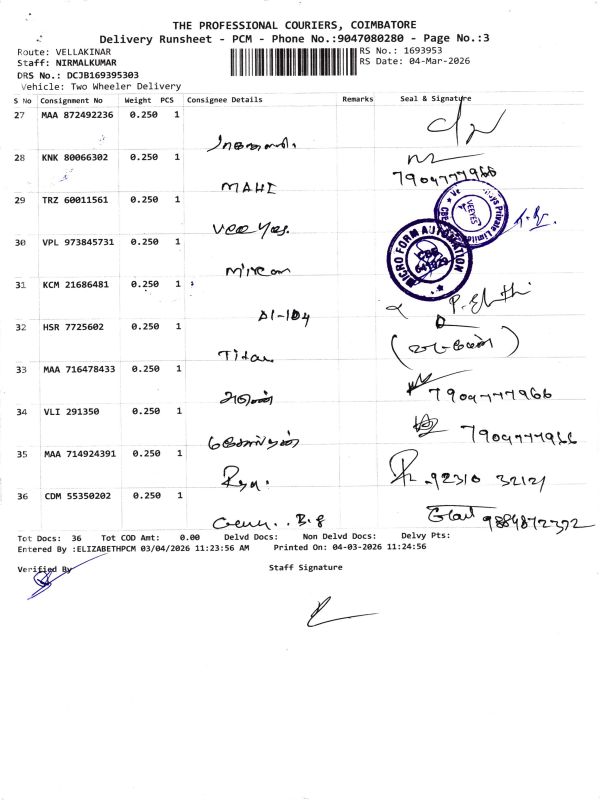 THE PROFESSIONAL COURIERS, COIMBATORE
Delivery Runsheet - PCM - Phone No.:9047080280 - Page No.:3
Route: VELLAKINAR
Staff: NIRMALKUMAR
DRS No.: DCJB169395303
Vehicle: Two Wheeler Delivery
RS No.: 1693953
RS Date: 04-Mar-2026
S No Consignment No Weight PCS Consignee Details Remarks Seal & Signature
27 MAA 872492236 0.250 1
28 KNK 80066302 0.250 1
MAHI 7904777966
29 TRZ 60011561 0.250 1
Vee Yes.
VEEYES
Private Limited
30 VPL 973845731 0.250 1
MICRO FORM AUTOMATION
CBE
641029
31 KCM 21686481 0.250 1
D1-104
32 HSR 7725602 0.250 1
Titan
33 MAA 716478433 0.250 1
அருண் 7904777966
34 VLI 291350 0.250 1
7904777966
35 MAA 714924391 0.250 1
92310 32121
36 CDM 55350202 0.250 1
9884872372
Tot Docs: 36 Tot COD Amt: 0.00 Delvd Docs: Non Delvd Docs: Delvy Pts:
Entered By :ELIZABETHPCM 03/04/2026 11:23:56 AM Printed On: 04-03-2026 11:24:56
Verified By Staff Signature